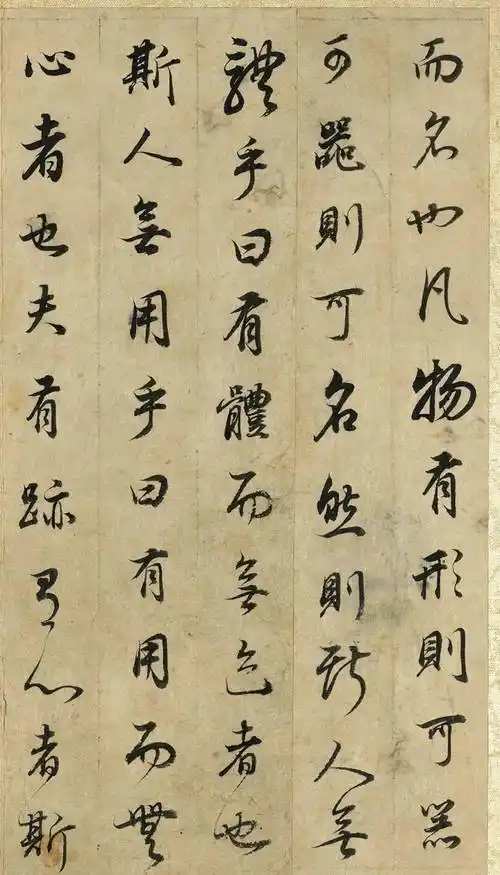 而名也凡物有形則可器
可器則可名然則斯人無
體乎曰有體而無迹者也
斯人無用乎曰有用而無
心者也夫有跡有心者斯